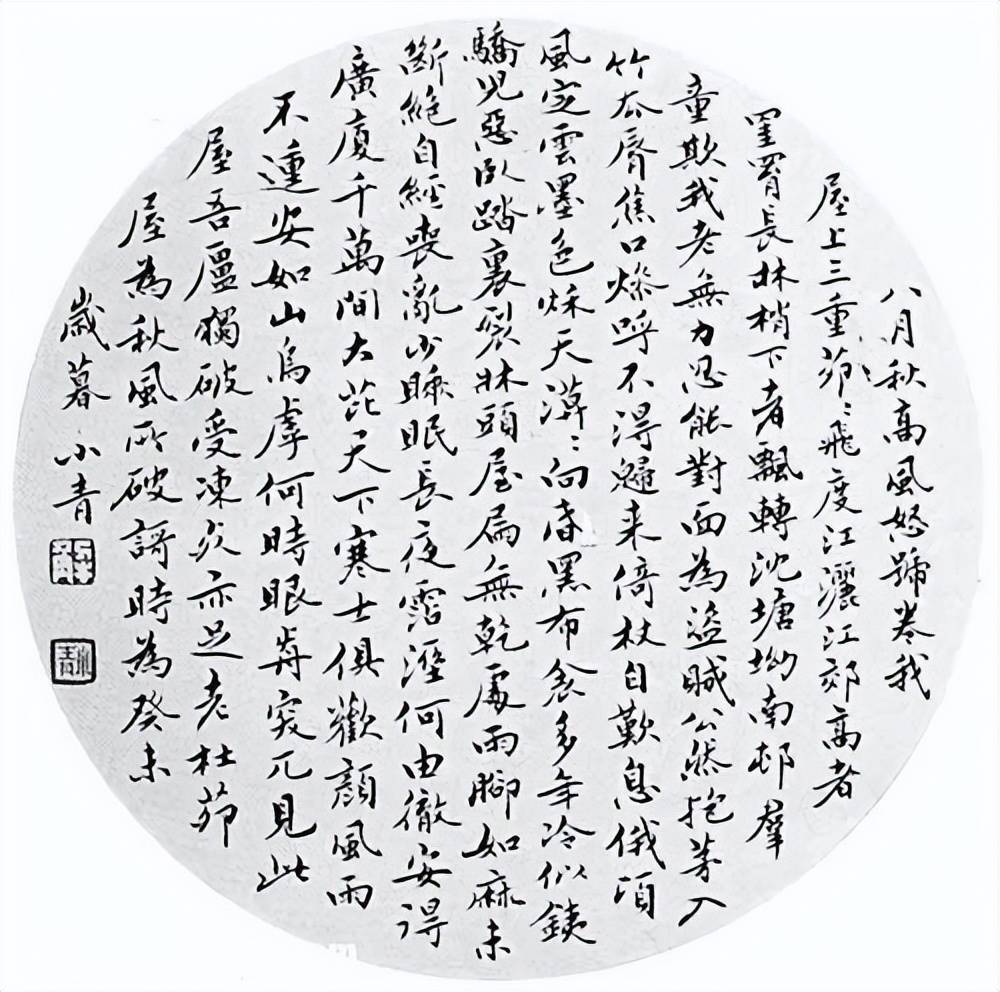 八月秋高風怒號卷我
屋上三重茆〻飛度江灑江郊高者
罣罥長林梢下者飄轉沈塘坳南邨羣
童欺我老無力忍能對面為盜賊公然抱茅入
竹去脣焦口燥呼不得歸来倚杖自歎息俄頃
風定雲墨色秋天漠〻向昏黑布衾多年冷似銕
驕兒惡臥踏裏裂牀頭屋扁無乾處雨腳如麻未
斷絶自經喪亂少睡眠長夜霑溼何由徹安得
廣廈千萬間大芘天下寒士俱歡顔風雨
不動安如山烏虖何時眼歬突兀見此
屋吾廬獨破受凍死亦足老杜茆
屋為秋風所破謌時為癸未
歲暮小青